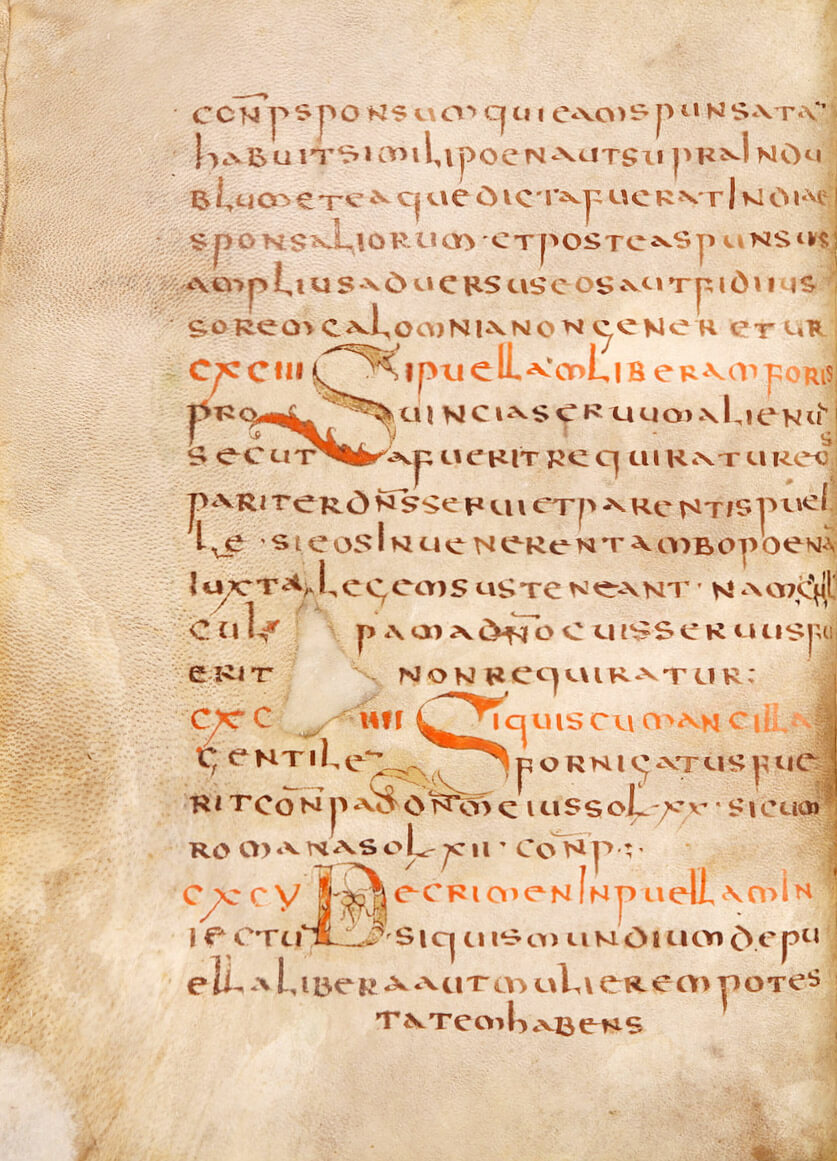 con̄p sponsum qui eam spunsata
habuit simili poena ut supra In du
blum et ea que dicta fuerat In diae
sponsaliorum · et postea spunsus
amplius aduersus eos aut fidiius
sorem calomnia non generetur
cxciii Si puellam liberam foris
prouincia seruum alienū
secuta fuerit requirat ureos
pariter dn̄s serui et parentis puel
le · si eos Inuenerent ambo poena
Iuxta legem susteneant · nam
culpam adn̄o cui seruus fu
erit non requiratur :
cxciiii Si quis cum ancilla
gentile fornigatus fue
rit con̄p ad don̄m eius sol xx · si cum
romana sol xii · con̄p ·:·
cxcv De crimen In puellam In
iectum · si quis mundium de pu
ella libera aut mulierem potes
tatem habens